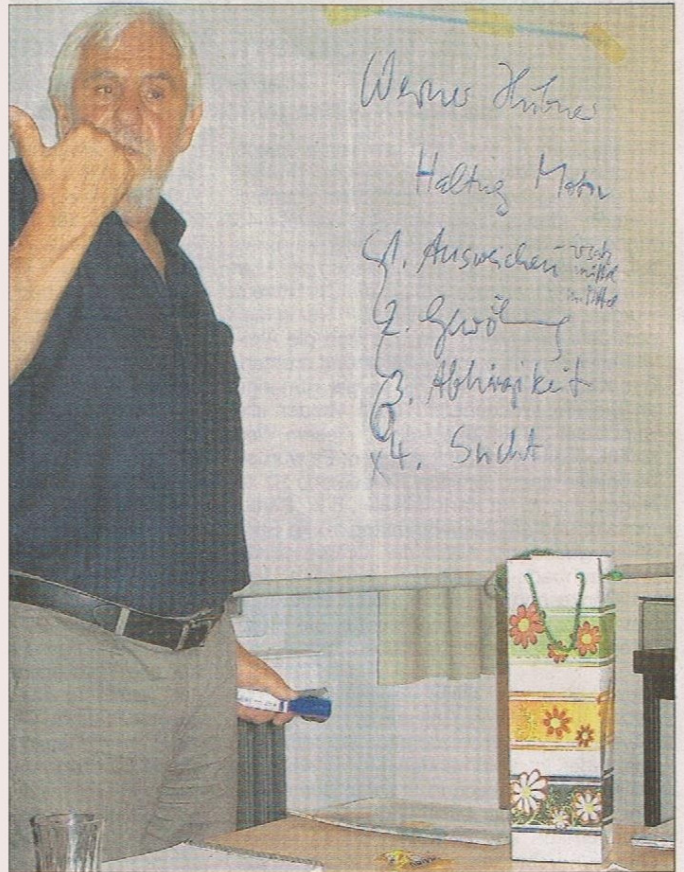 Werner Hübner
Haltung Motiv
1. Ausweichen
2. Gewöhnung
3. Abhängigkeit
x 4. Sucht